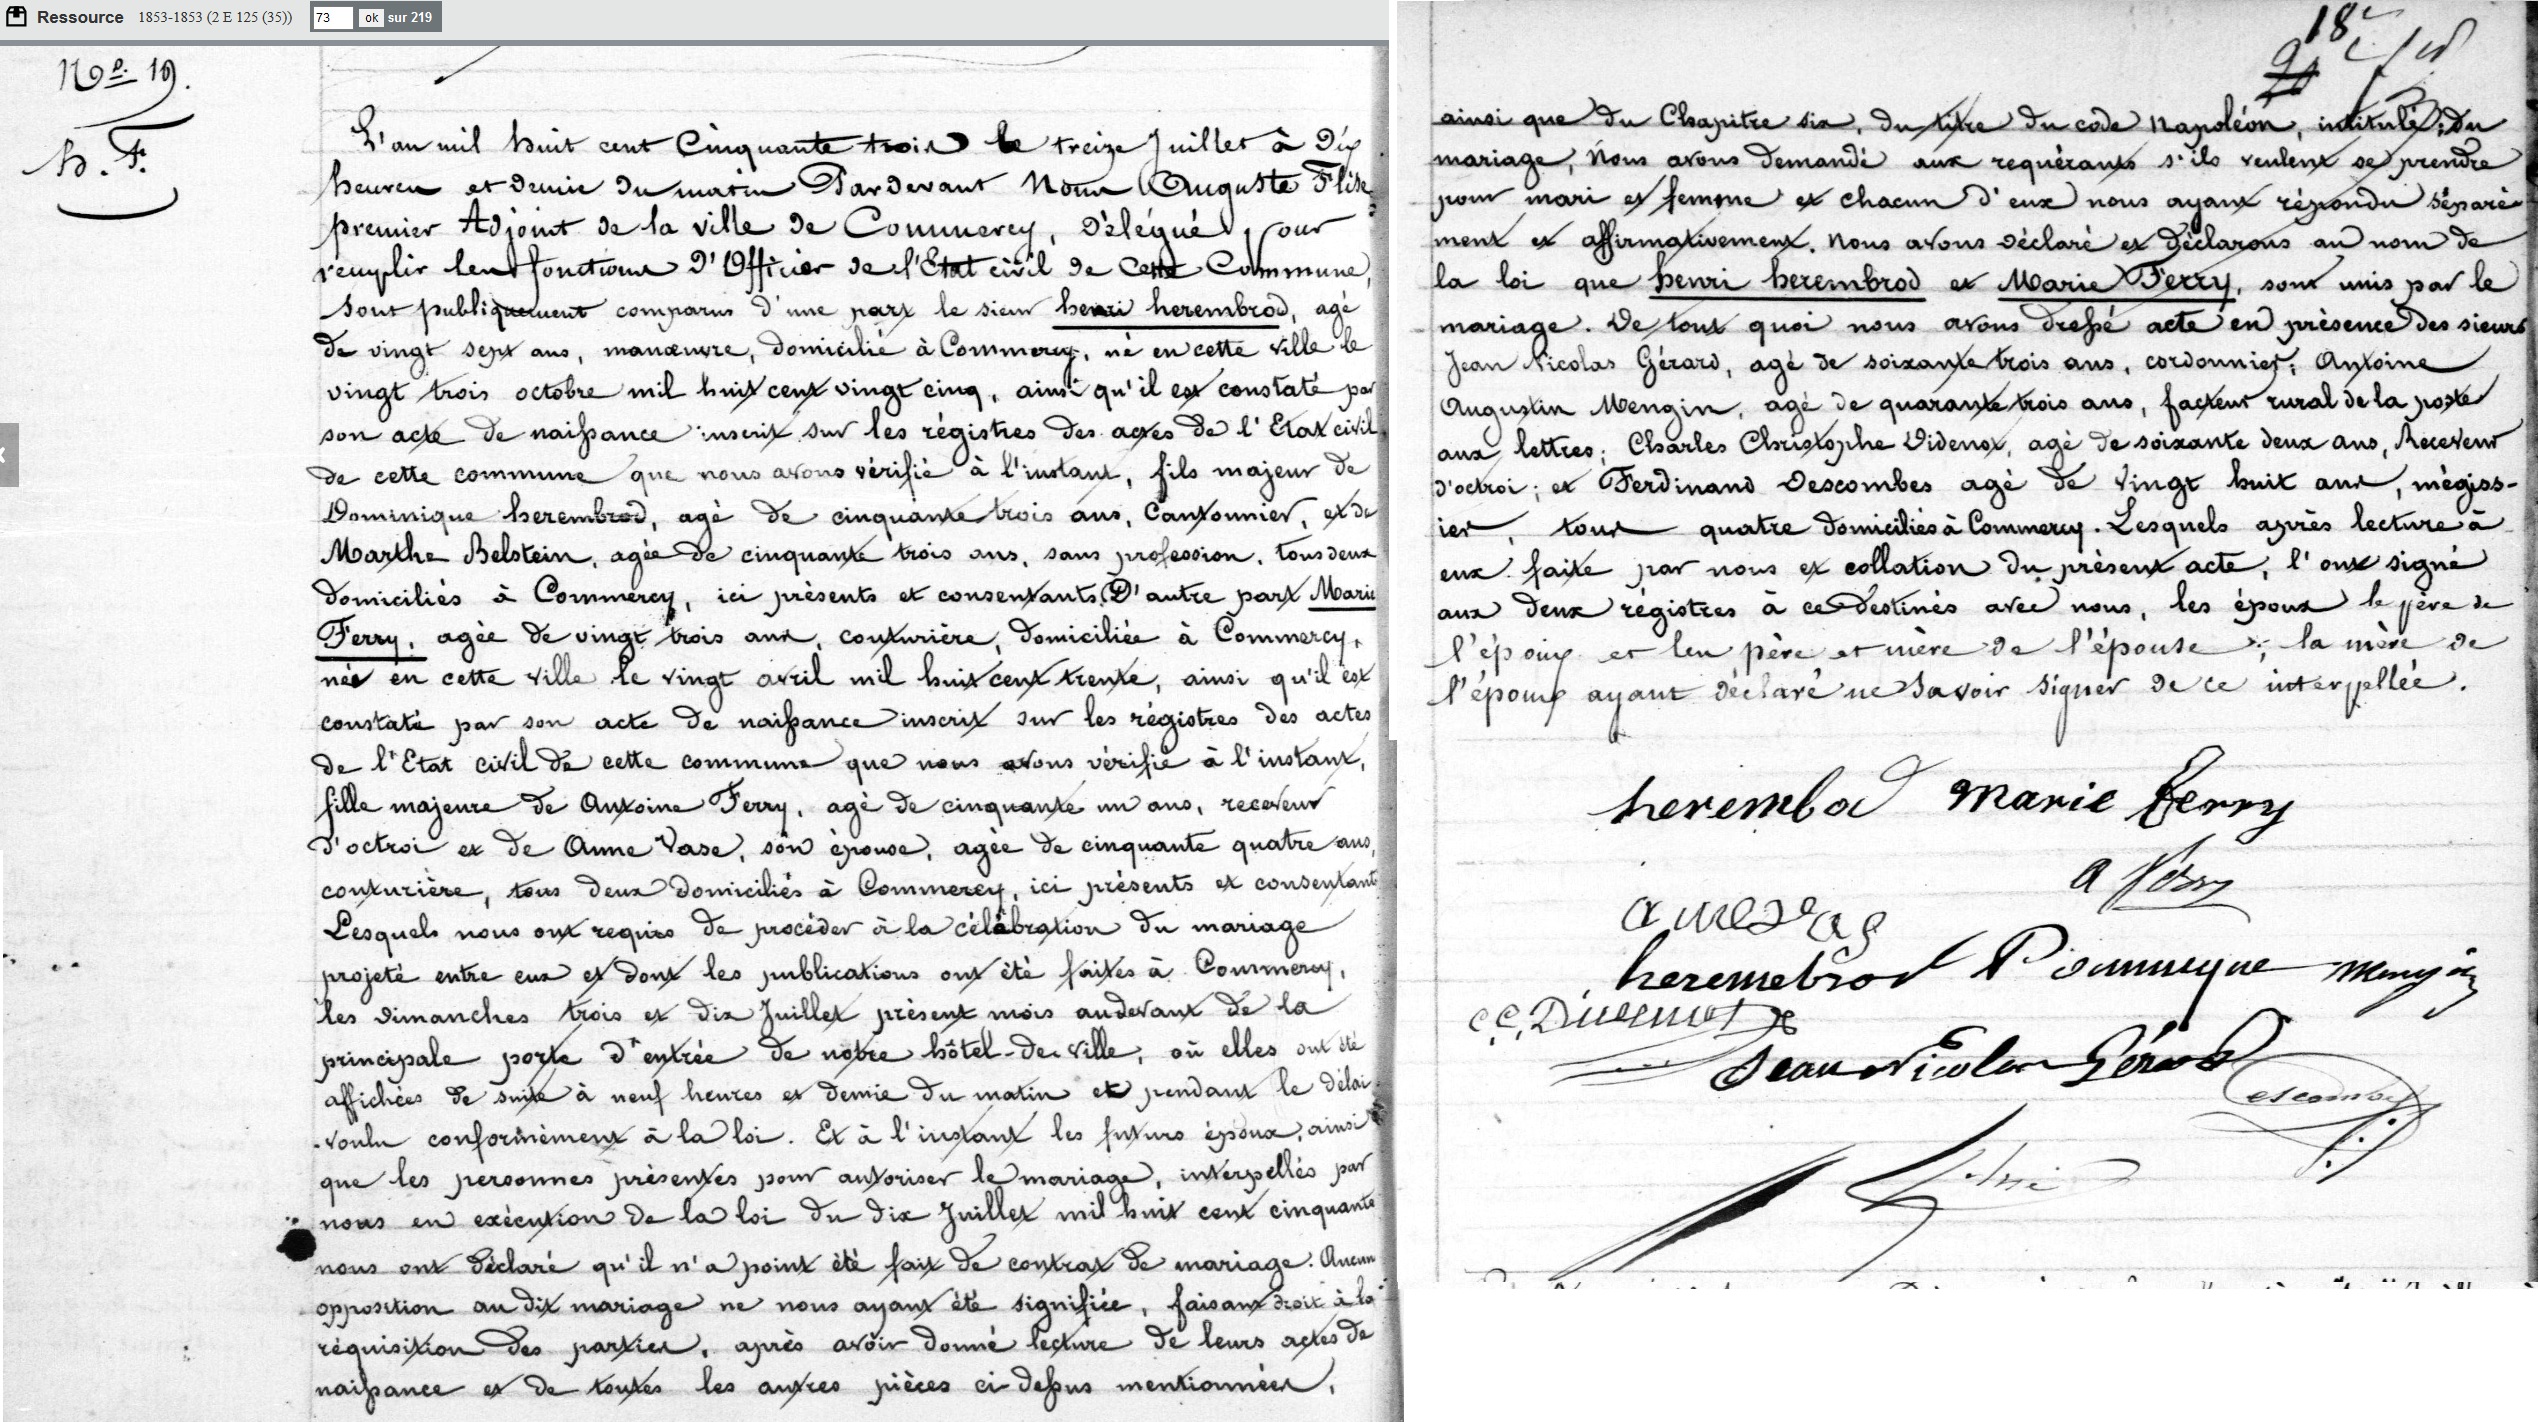 Ressource 1853-1853 (2 E 125 (35)) 73 ok sur 219
Nº 19.
h. F.
L'an mil huit cent Cinquante trois le treize Juillet à Dix
heures et demie du matin Pardevant Nous Auguste Flise
premier Adjoint de la ville de Commercy, Délégué pour
remplir les fonctions D'Officier de l'Etat civil de Cette Commune,
Sont publiquement comparus d'une part le sieur henri herembrod, agé
de vingt sept ans, manœuvre, domicilié à Commercy, né en cette ville le
vingt trois octobre mil huit cent vingt cinq, ainsi qu'il est constaté par
son acte de naissance inscrit sur les régistres des actes de l'Etat civil
de cette commune que nous avons vérifié à l'instant, fils majeur de
Dominique herembrod, agé de cinquante trois ans, Cantonnier, et de
Marthe Belstein, agée de cinquante trois ans, sans profession, tous deux
domiciliés à Commercy, ici présents et consentants. D'autre part Marie
Ferry, agée de vingt trois ans, couturière, domiciliée à Commercy,
née en cette ville le vingt avril mil huit cent trente, ainsi qu'il est
constaté par son acte de naissance inscrit sur les régistres des actes
de l'Etat civil de cette commune que nous avons vérifié à l'instant,
fille majeure de Antoine Ferry, agé de cinquante un ans, receveur
d'octroi et de Anne Vase, son épouse, agée de cinquante quatre ans,
couturière, tous deux domiciliés à Commercy, ici présents et consentant
Lesquels nous ont requis de procéder à la célébration du mariage
projeté entre eux et dont les publications ont été faites à Commercy,
les dimanches trois et dix Juillet présent mois audevant de la
principale porte d'entrée de notre hôtel-de-ville, où elles ont été
affichées de suite à neuf heures et demie du matin et pendant le délai
voulu conformément à la loi. Et à l'instant les futurs époux, ainsi
que les personnes présentes pour autoriser le mariage, interpellés par
nous en exécution de la loi du dix Juillet mil huit cent cinquante
nous ont déclaré qu'il n'a point été fait de contrat de mariage. Aucun
opposition au dit mariage ne nous ayant été signifiée, faisant droit à la
réquisition des parties, après avoir donné lecture de leurs actes de
naissance et de toutes les autres pièces ci-dessus mentionnées,
18
ainsi que du Chapitre six, du titre du code Napoléon, intitulé: du
mariage, Nous avons demandé aux requérants s'ils veulent se prendre
pour mari et femme et chacun d'eux nous ayant répondu séparé-
ment et affirmativement. Nous avons déclaré et déclarons au nom de
la loi que henri herembrod et Marie Ferry, sont unis par le
mariage. De tout quoi nous avons dressé acte en présence des sieurs
Jean Nicolas Gérard, agé de soixante trois ans, cordonnier; Antoine
Augustin Mengin, agé de quarante trois ans, facteur rural de la poste
aux lettres; Charles Christophe Videnot, agé de soixante deux ans, Receveur
d'octroi; et Ferdinand Descombes agé de vingt huit ans, mégiss-
ier, tous quatre domiciliés à Commercy. Lesquels après lecture à
eux faite par nous et collation du présent acte, l'ont signé
aux deux régistres à ce destinés avec nous, les époux le père de
l'époux et les père et mère de l'épouse; la mère de
l'époux ayant déclaré ne Savoir signer de ce interpellée.
herembod Marie ferry
a ferry
heremebrod Dominique mengin
Jean Nicolas Gérard
Descombes